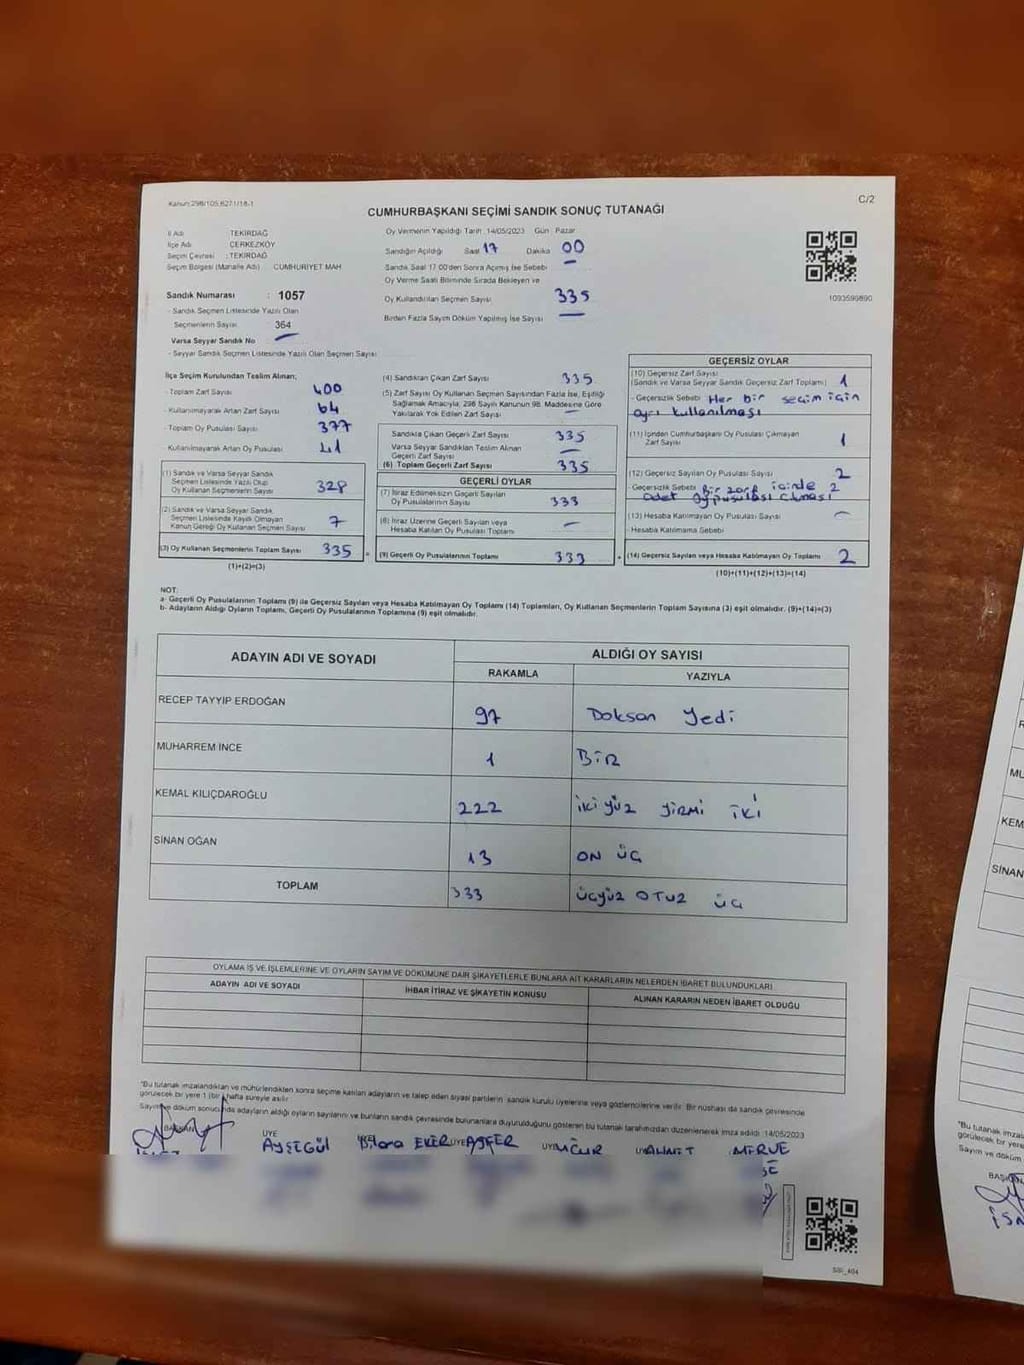 Kanun:298/105,6271/18-1
C/2
CUMHURBAŞKANI SEÇİMİ SANDIK SONUÇ TUTANAĞI
İl Adı : TEKİRDAĞ
İlçe Adı : ÇERKEZKÖY
Seçim Çevresi : TEKİRDAĞ
Seçim Bölgesi (Mahalle Adı) : CUMHURİYET MAH.
Sandık Numarası : 1057
- Sandık Seçmen Listesinde Yazılı Olan
Seçmenlerin Sayısı : 364
Varsa Seyyar Sandık No
- Seyyar Sandık Seçmen Listesinde Yazılı Olan Seçmen Sayısı:
Oy Vermenin Yapıldığı Tarih :14/05/2023 Gün : Pazar
Sandığın Açıldığı Saat 17 Dakika 00
Sandık Saat 17.00'den Sonra Açılmış İse Sebebi
Oy Verme Saati Bitiminde Sırada Bekleyen ve
Oy Kullandırılan Seçmen Sayısı 335
Birden Fazla Sayım Döküm Yapılmış İse Sayısı
1093599890
İlçe Seçim Kurulundan Teslim Alınan;
- Toplam Zarf Sayısı 400
- Kullanılmayarak Artan Zarf Sayısı 64
- Toplam Oy Pusulası Sayısı 377
- Kullanılmayarak Artan Oy Pusulası 41
(1) Sandık ve Varsa Seyyar Sandık
Seçmen Listesinde Yazılı Olup
Oy Kullanan Seçmenlerin Sayısı 328
(2) Sandık ve Varsa Seyyar Sandık
Seçmen Listesinde Kayıtlı Olmayan
Kanun Gereği Oy Kullanan Seçmen Sayısı 7
(3) Oy Kullanan Seçmenlerin Toplam Sayısı 335
(1)+(2)=(3)
(4) Sandıktan Çıkan Zarf Sayısı 335
(5) Zarf Sayısı Oy Kullanan Seçmen Sayısından Fazla İse, Eşitliği
Sağlamak Amacıyla; 298 Sayılı Kanunun 98. Maddesine Göre
Yakılarak Yok Edilen Zarf Sayısı
Sandıkta Çıkan Geçerli Zarf Sayısı 335
Varsa Seyyar Sandıktan Teslim Alınan
Geçerli Zarf Sayısı
(6) Toplam Geçerli Zarf Sayısı 335
GEÇERLİ OYLAR
(7) İtiraz Edilmeksizin Geçerli Sayılan
Oy Pusulalarının Sayısı 333
(8) İtiraz Üzerine Geçerli Sayılan veya
Hesaba Katılan Oy Pusulaları Toplamı
(9) Geçerli Oy Pusulalarının Toplamı 333
GEÇERSİZ OYLAR
(10) Geçersiz Zarf Sayısı
(Sandık ve Varsa Seyyar Sandık Geçersiz Zarf Toplamı) 1
- Geçersizlik Sebebi Her bir seçim için
ayrı kullanılması
(11) İçinden Cumhurbaşkanı Oy Pusulası Çıkmayan
Zarf Sayısı 1
(12) Geçersiz Sayılan Oy Pusulası Sayısı 2
- Geçersizlik Sebebi Bir zarf içinde 2
adet oy pusulası çıkması
(13) Hesaba Katılmayan Oy Pusulası Sayısı
Hesaba Katılmama Sebebi
(14) Geçersiz Sayılan veya Hesaba Katılmayan Oy Toplamı 2
(10)+(11)+(12)+(13)=(14)
NOT:
a- Geçerli Oy Pusulalarının Toplamı (9) ile Geçersiz Sayılan veya Hesaba Katılmayan Oy Toplamı (14) Toplamları, Oy Kullanan Seçmenlerin Toplam Sayısına (3) eşit olmalıdır. (9)+(14)=(3)
b- Adayların Aldığı Oyların Toplamı, Geçerli Oy Pusulalarının Toplamına (9) eşit olmalıdır.
ADAYIN ADI VE SOYADI
ALDIĞI OY SAYISI
RAKAMLA YAZIYLA
RECEP TAYYİP ERDOĞAN 97 Doksan Yedi
MUHARREM İNCE 1 BİR
KEMAL KILIÇDAROĞLU 222 iki yüz yirmi iki
SİNAN OĞAN 13 ON ÜÇ
TOPLAM 333 üçyüz OTUZ üç
OYLAMA İŞ VE İŞLEMLERİNE VE OYLARIN SAYIM VE DÖKÜMÜNE DAİR ŞİKAYETLERLE BUNLARA AİT KARARLARIN NELERDEN İBARET BULUNDUKLARI
ADAYIN ADI VE SOYADI İHBAR İTİRAZ VE ŞİKAYETİN KONUSU ALINAN KARARIN NEDEN İBARET OLDUĞU
"Bu tutanak imzalandıktan ve mühürlendikten sonra seçime katılan adayların ve talep eden siyasi partilerin sandık kurulu üyelerine veya gözlemcilerine verilir. Bir nüshası da sandık çevresinde
görülecek bir yere 1 (bir) hafta süreyle asılır.
Sayım ve döküm sonucunda adayların aldığı oyların sayılarını ve bunların sandık çevresinde bulunanlara duyurulduğunu gösteren bu tutanak tarafımızdan düzenlenerek imza edildi. 14/05/2023
BAŞKAN ÜYE ÜYE ÜYE ÜYE ÜYE
AYŞEGÜL EKER UĞUR AHMET MERVE
SSİ_404
MU
KEM
SİNAN
"Bu tutan
görülecek
Sayım ve
BAŞKAN